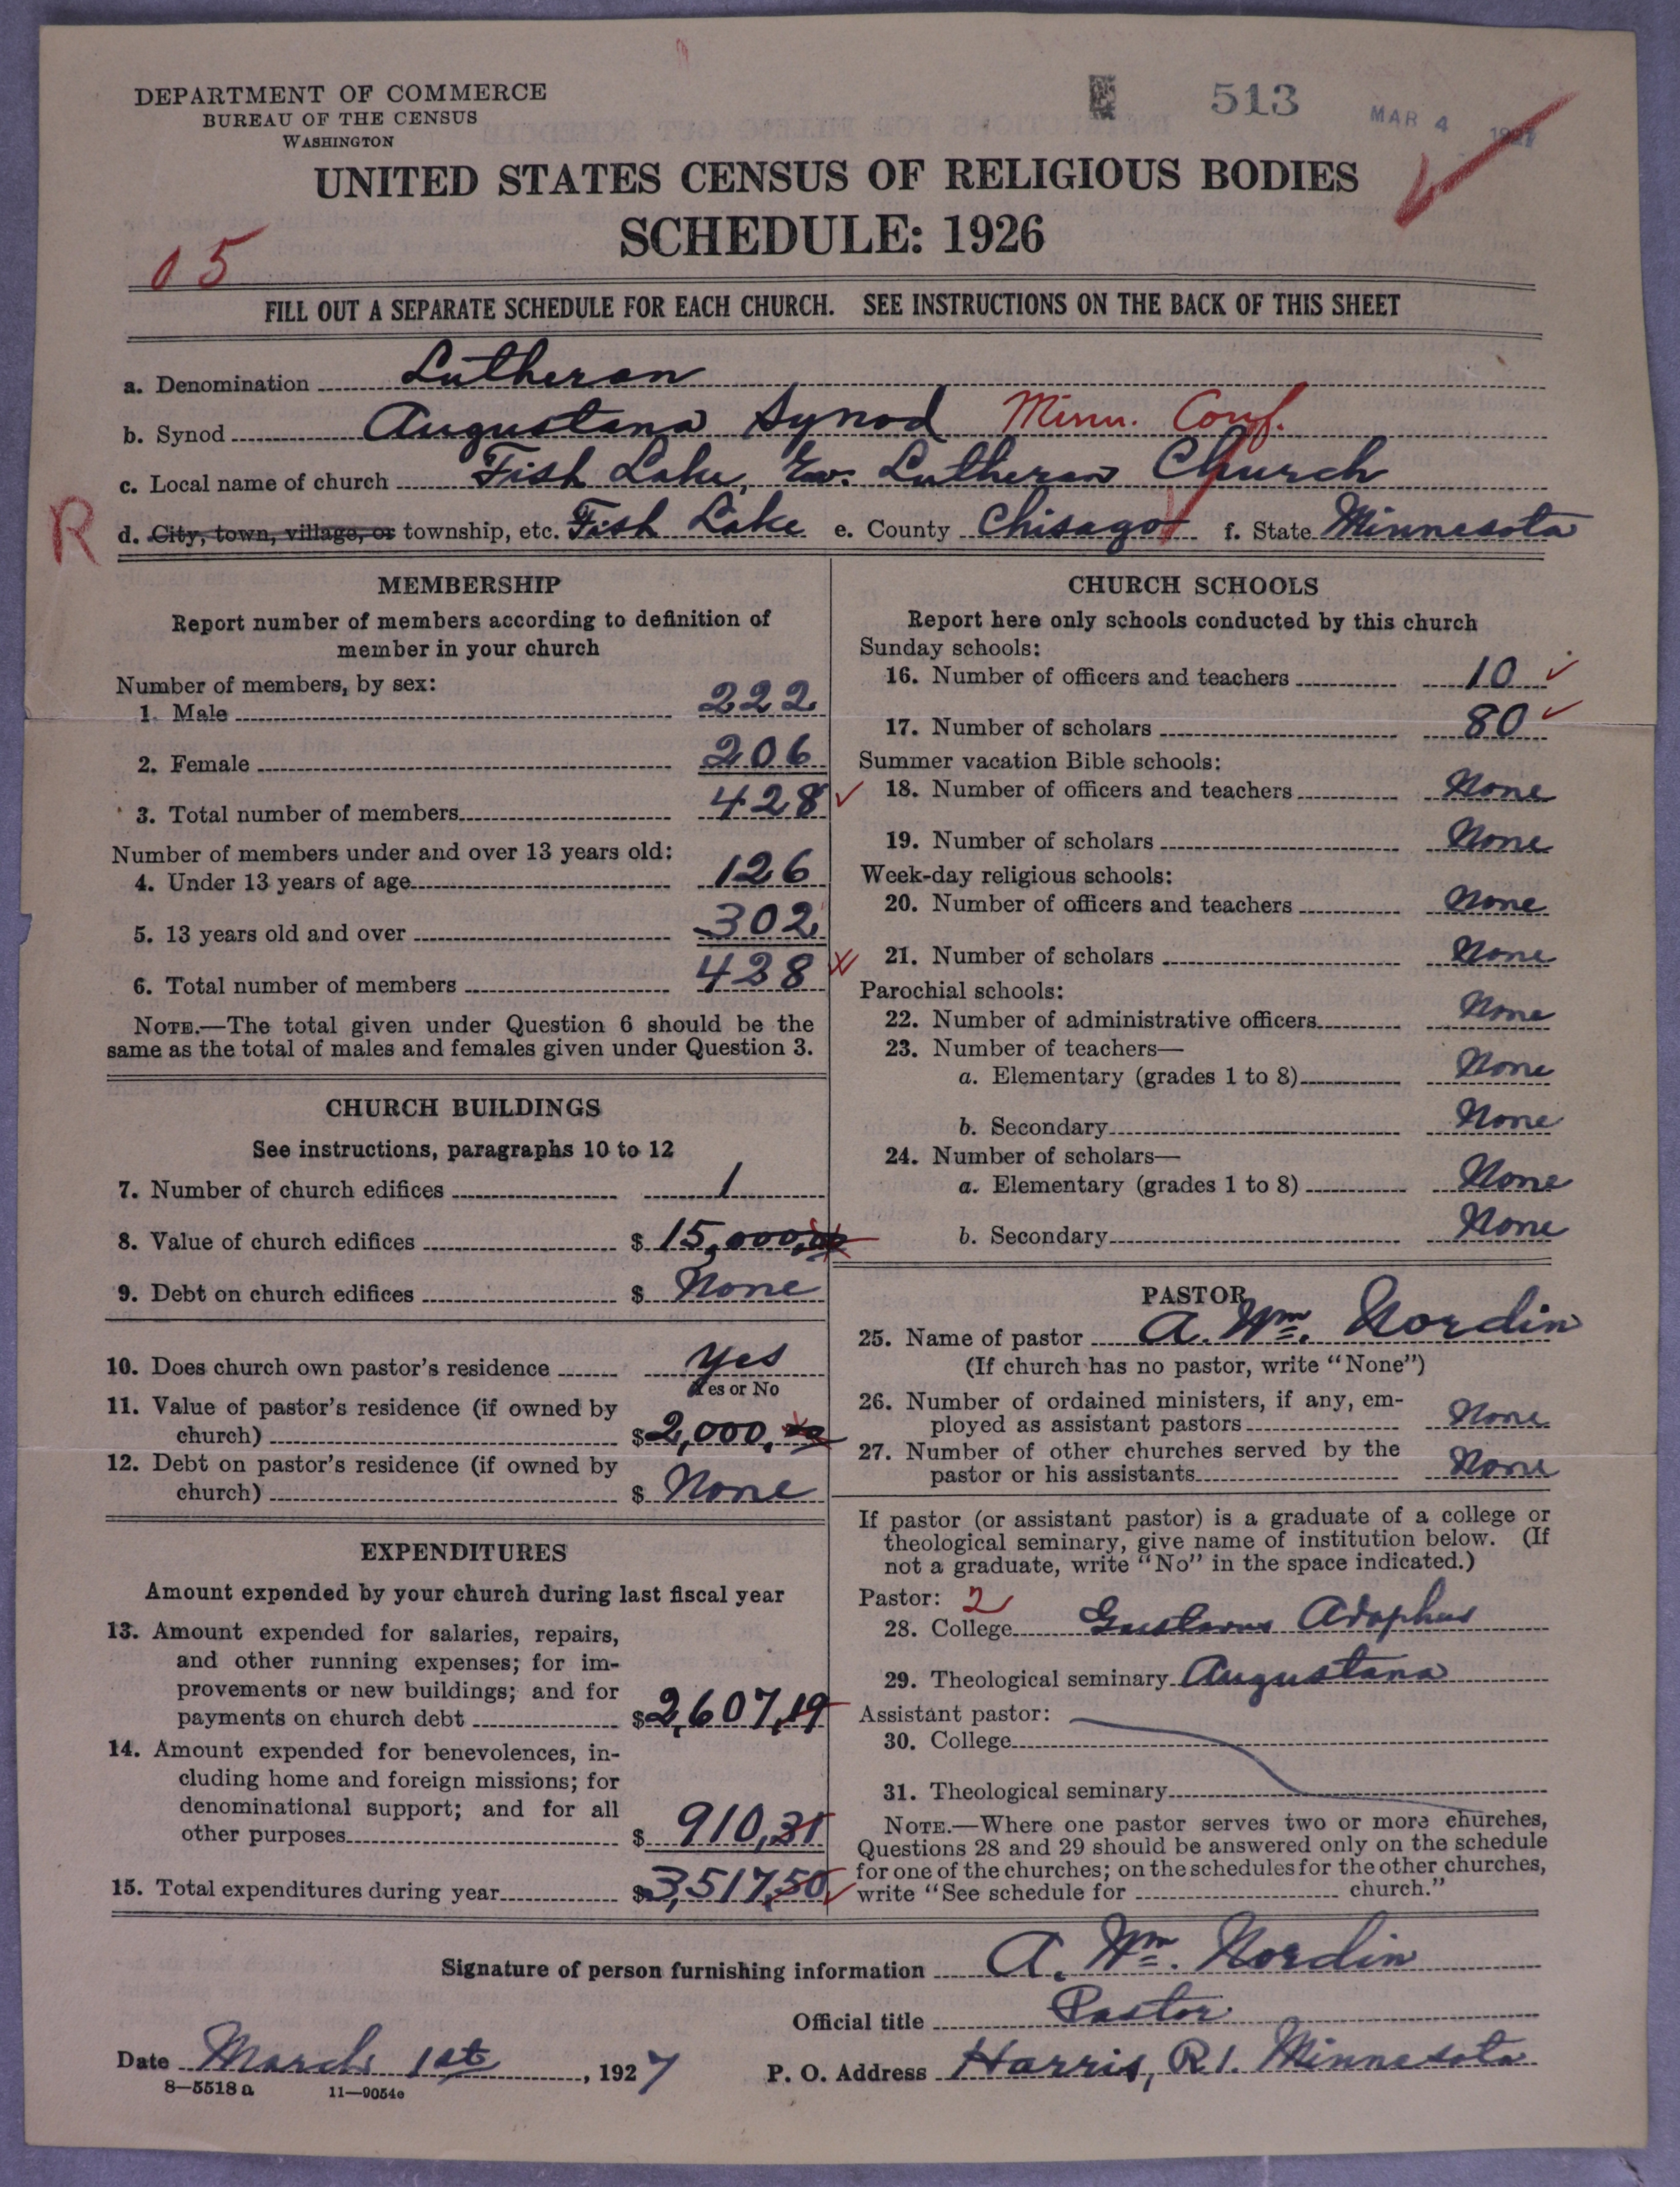 DEPARTMENT OF COMMERCE
BUREAU OF THE CENSUS
WASHINGTON
513
MAR 4 1927
UNITED STATES CENSUS OF RELIGIOUS BODIES
SCHEDULE: 1926
05
FILL OUT A SEPARATE SCHEDULE FOR EACH CHURCH. SEE INSTRUCTIONS ON THE BACK OF THIS SHEET
a. Denomination Lutheran
b. Synod Augustana Synod Minn. Conf.
c. Local name of church Fish Lake, Ev. Lutheran Church
R
d. City, town, village, or township, etc. Fish Lake e. County Chisago f. State Minnesota
MEMBERSHIP
Report number of members according to definition of
member in your church
Number of members, by sex:
1. Male 222
2. Female 206
3. Total number of members 428
Number of members under and over 13 years old:
4. Under 13 years of age 126
5. 13 years old and over 302
6. Total number of members 428
NOTE.—The total given under Question 6 should be the
same as the total of males and females given under Question 3.
CHURCH BUILDINGS
See instructions, paragraphs 10 to 12
7. Number of church edifices 1
8. Value of church edifices $ 15,000.00
9. Debt on church edifices $ None
10. Does church own pastor's residence Yes
Yes or No
11. Value of pastor's residence (if owned by
church) $ 2,000.00
12. Debt on pastor's residence (if owned by
church) $ None
EXPENDITURES
Amount expended by your church during last fiscal year
13. Amount expended for salaries, repairs,
and other running expenses; for im-
provements or new buildings; and for
payments on church debt $ 2,607,19
14. Amount expended for benevolences, in-
cluding home and foreign missions; for
denominational support; and for all
other purposes $ 910,31
15. Total expenditures during year $ 3,517,50
CHURCH SCHOOLS
Report here only schools conducted by this church
Sunday schools:
16. Number of officers and teachers 10
17. Number of scholars 80
Summer vacation Bible schools:
18. Number of officers and teachers None
19. Number of scholars None
Week-day religious schools:
20. Number of officers and teachers None
21. Number of scholars None
Parochial schools:
22. Number of administrative officers None
23. Number of teachers—
a. Elementary (grades 1 to 8) None
b. Secondary None
24. Number of scholars—
a. Elementary (grades 1 to 8) None
b. Secondary None
PASTOR
25. Name of pastor A. Wm. Nordin
(If church has no pastor, write "None")
26. Number of ordained ministers, if any, em-
ployed as assistant pastors None
27. Number of other churches served by the
pastor or his assistants None
If pastor (or assistant pastor) is a graduate of a college or
theological seminary, give name of institution below. (If
not a graduate, write "No" in the space indicated.)
Pastor: 2
28. College Gustavus Adophus
29. Theological seminary Augustana
Assistant pastor:
30. College
31. Theological seminary
NOTE.—Where one pastor serves two or more churches,
Questions 28 and 29 should be answered only on the schedule
for one of the churches; on the schedules for the other churches,
write "See schedule for church."
Signature of person furnishing information A. Wm. Nordin
Official title Pastor
Date March 1st, 1927 P. O. Address Harris, R1. Minnesota
8—5518a 11—9054c